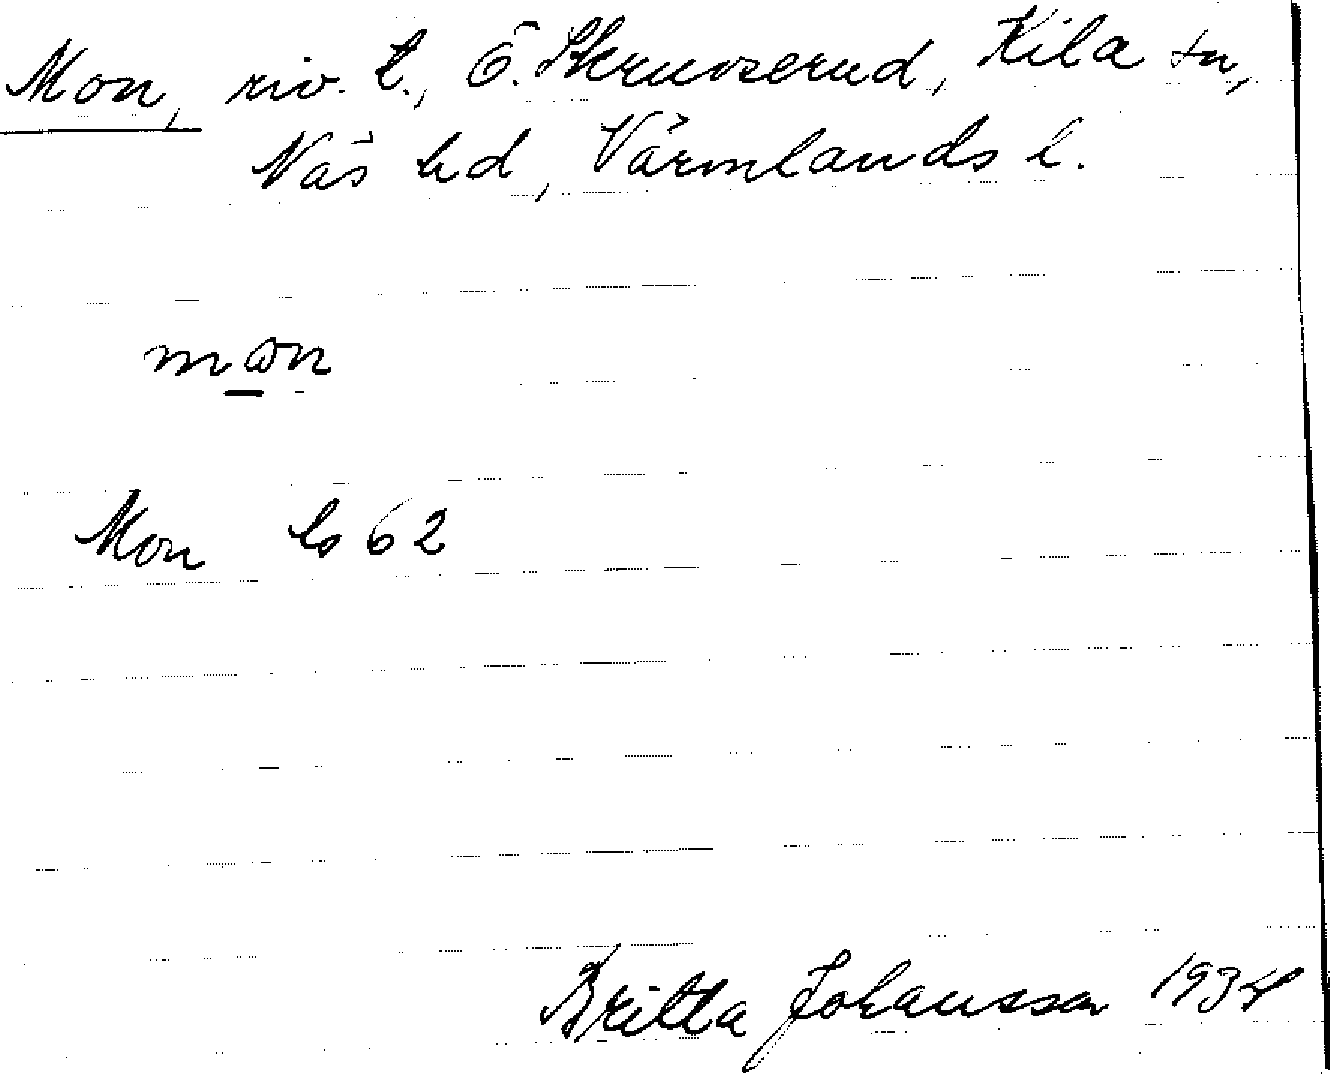 Mon, riv. t., Ö. Skruvserud, Kila sn,
Näs hd, Värmlands l.
mɷn
Mon ls 62
Britta Johansson 1934